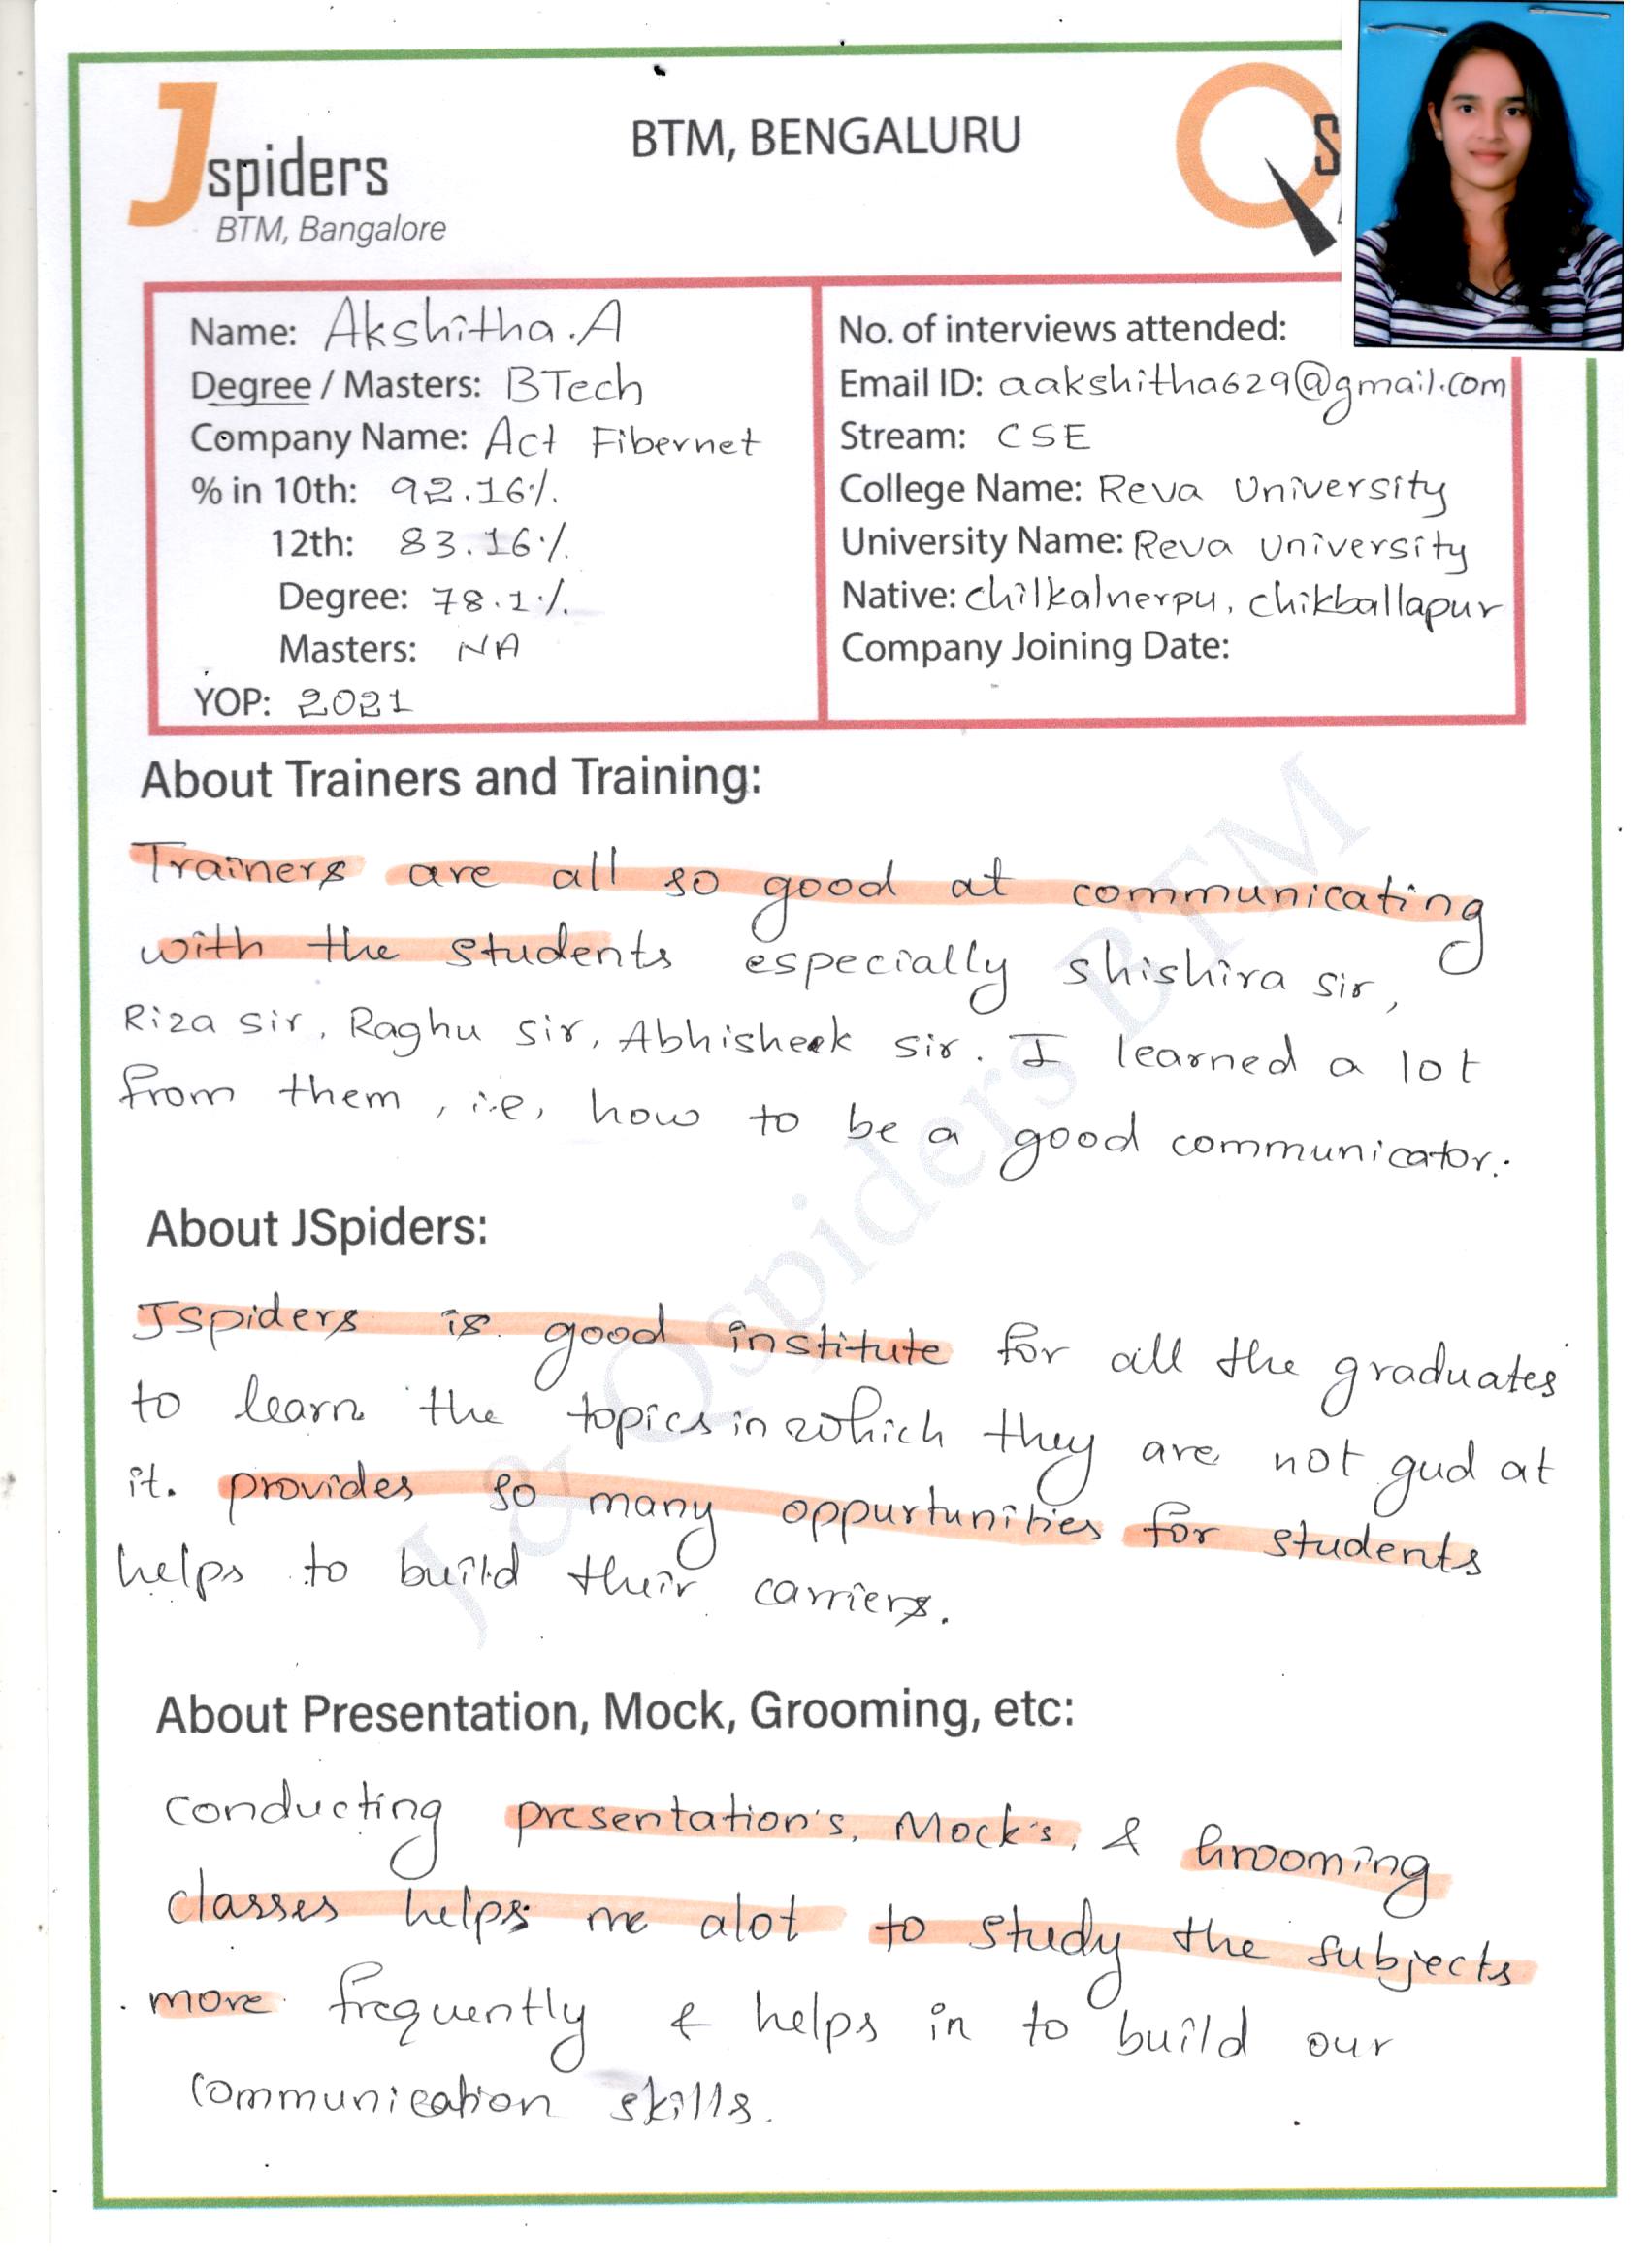 Jspiders
BTM, Bangalore
BTM, BENGALURU
Name: Akshitha.A
Degree / Masters: BTech
Company Name: Act Fibernet
% in 10th: 92.16%.
12th: 83.16%.
Degree: 78.1%.
Masters: NA
YOP: 2021
No. of interviews attended:
Email ID: aakshitha629@gmail.com
Stream: CSE
College Name: Reva University
University Name: Reva University
Native: Chilkalnerpu, Chikballapur
Company Joining Date:
About Trainers and Training:
Trainers are all so good at communicating
with the students especially shishira sir,
Riza sir, Raghu sir, Abhisheek sir. I learned a lot
from them, i.e, how to be a good communicator.
About JSpiders:
JSpiders is good institute for all the graduates
to learn the topics in which they are not gud at
it. provides so many oppurtunities for students
helps to build their carriers.
About Presentation, Mock, Grooming, etc:
Conducting presentation's, Mock's, & Grooming
classes helps me alot to study the subjects
more frequently & helps in to build our
communication skills.
J & Qspiders BTM